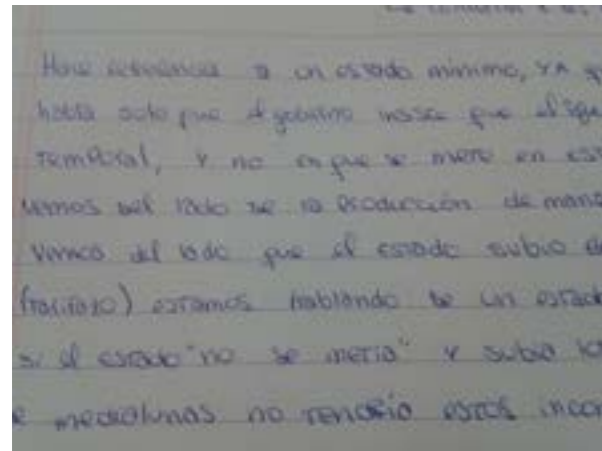 Hace referencia a un estado mínimo, YA
habla solo que el gobierno
Temporal, y no en que se mete en
vemos del lado de la producción de
vimos del lado que el estado subio
(tarifazo) estamos hablando de un estado
si el estado "no se metia" y subia
medialunas no tendria estos